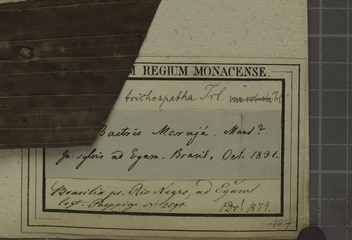 M REGIUM MONACENSE.
trichospatha Trl.
Bactris Marajá. Mart?
In sylvis ad Egam. Brasil, Oct. 1831.
Brasilia pr. Rio Negro, ad Egam
legt. Poeppig
Dr! 1879